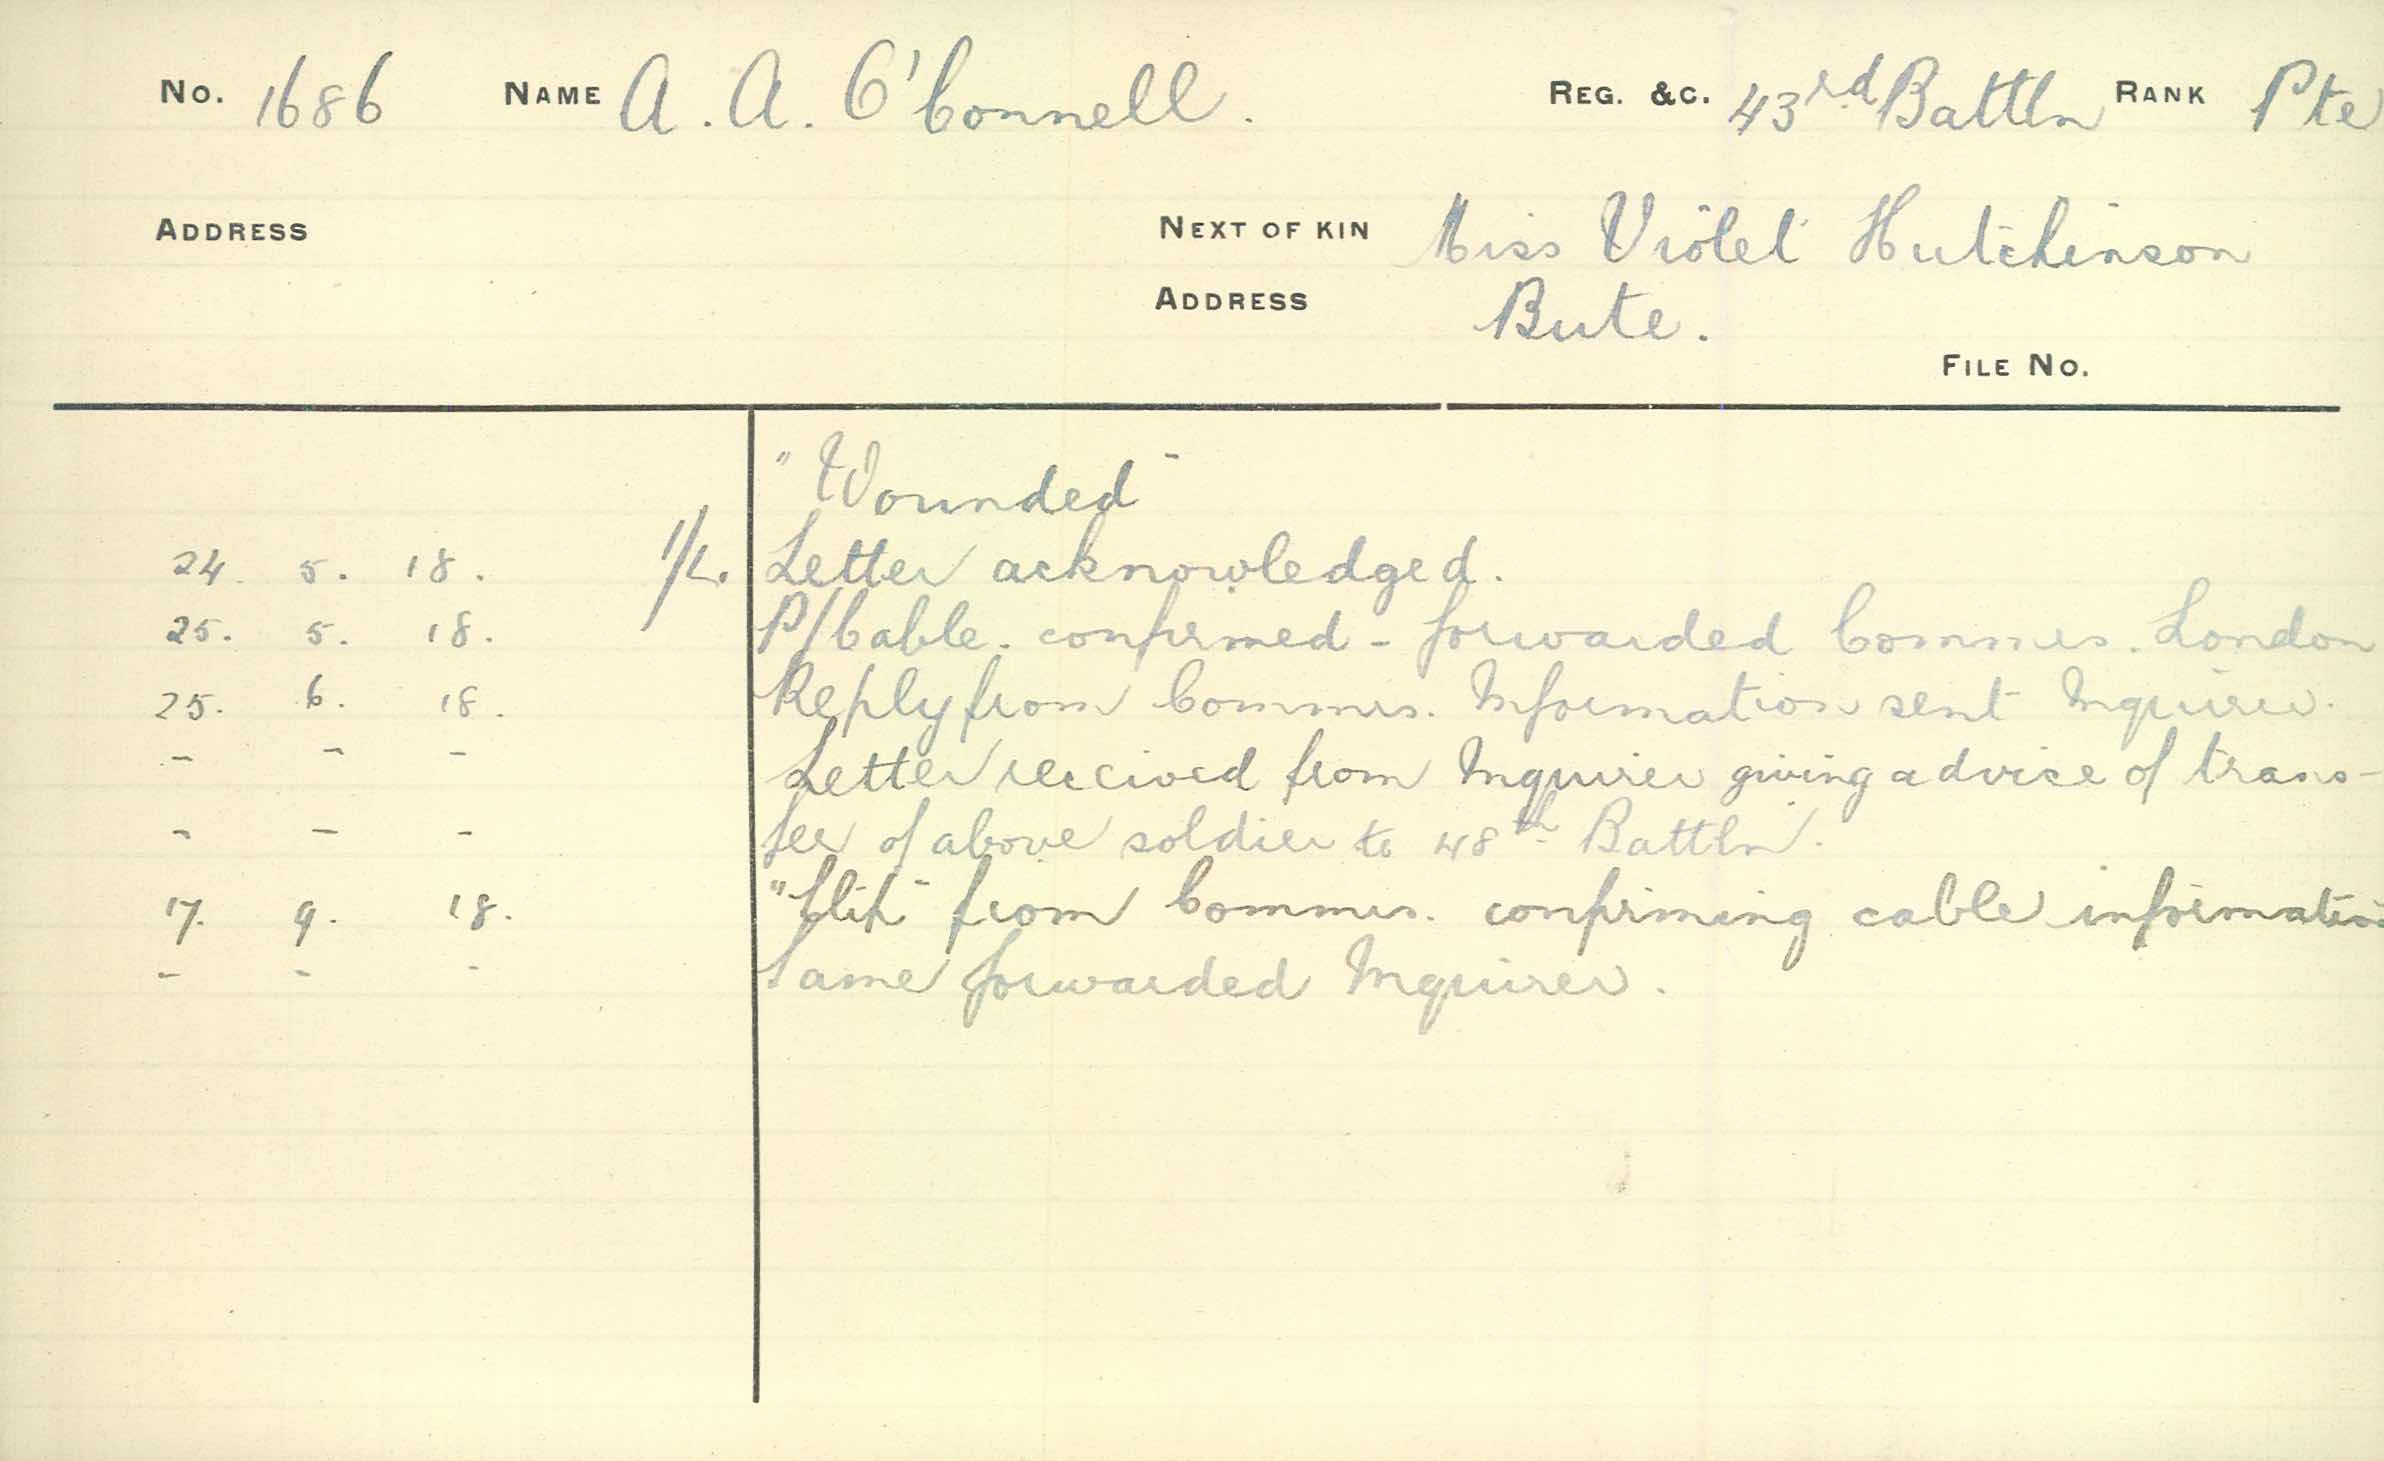 No. 1686 NAME A. A. O'Connell. REG. &C. 43rd Battln RANK Pte
ADDRESS NEXT OF KIN Miss Violet Hutchinson
ADDRESS Bute.
FILE No.
"Wounded"
24. 5. 18. 1/L. Letter acknowledged.
25. 5. 18. P/Cable. confirmed - forwarded Commrs. London
25. 6. 18. Reply from Commrs. Information sent Inquirer.
- - - Letter received from Inquirer giving advice of trans-
- - - fer of above soldier to 48th Battln.
17. 9. 18. "Slip" from Commrs. confirming cable information
- - - Same forwarded Inquirer.